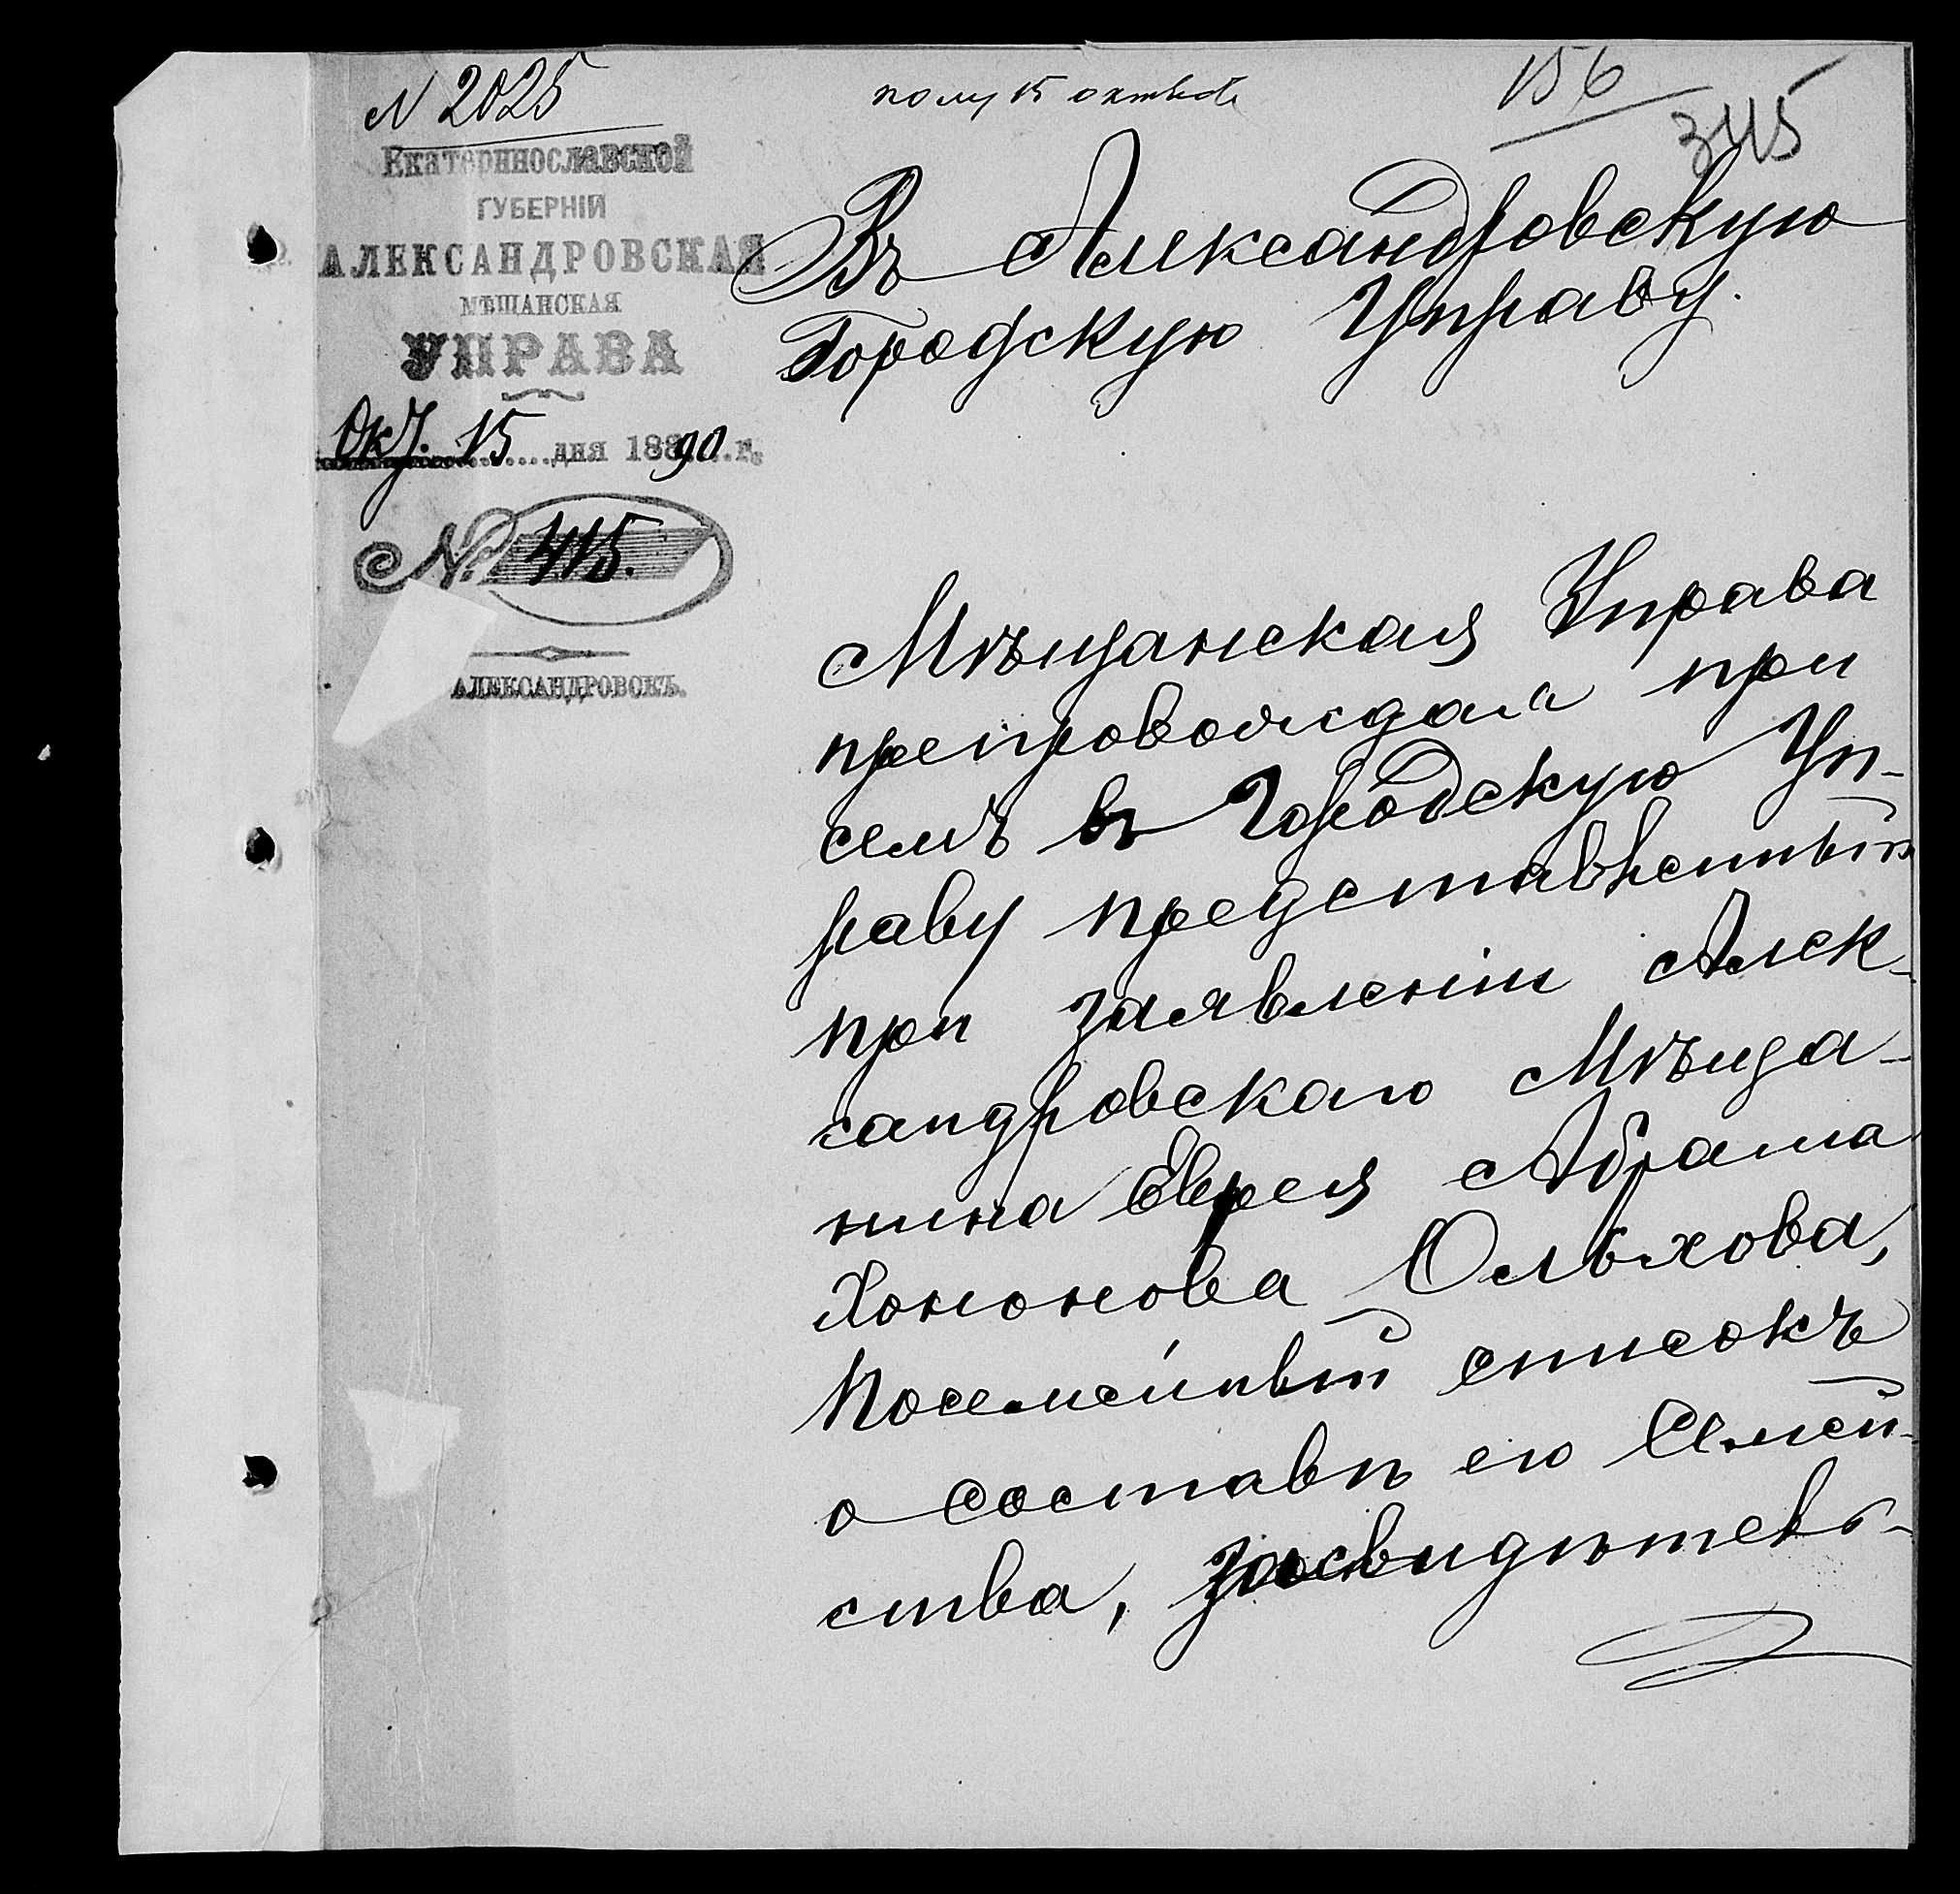 N 2025
полу 15 октяб
156
345
Екатеринославской
ГУБЕРНІИ
АЛЕКСАНДРОВСКАЯ
МѢЩАНСКАЯ
УПРАВА
Окт. 15 дня 1890 г.
№ 415.
АЛЕКСАНДРОВСКЪ.
Въ Александровскую
Городскую Управу.
Мѣщанская Управа
препровождая при
семъ въ Городскую Уп-
раву представленный
при заявленіи Алек-
сандровскаго Мѣща-
нина Еврея Абрама
Хононова Ольхова,
посемейный списокъ
о составѣ его Семей-
ства, засвидѣтель-